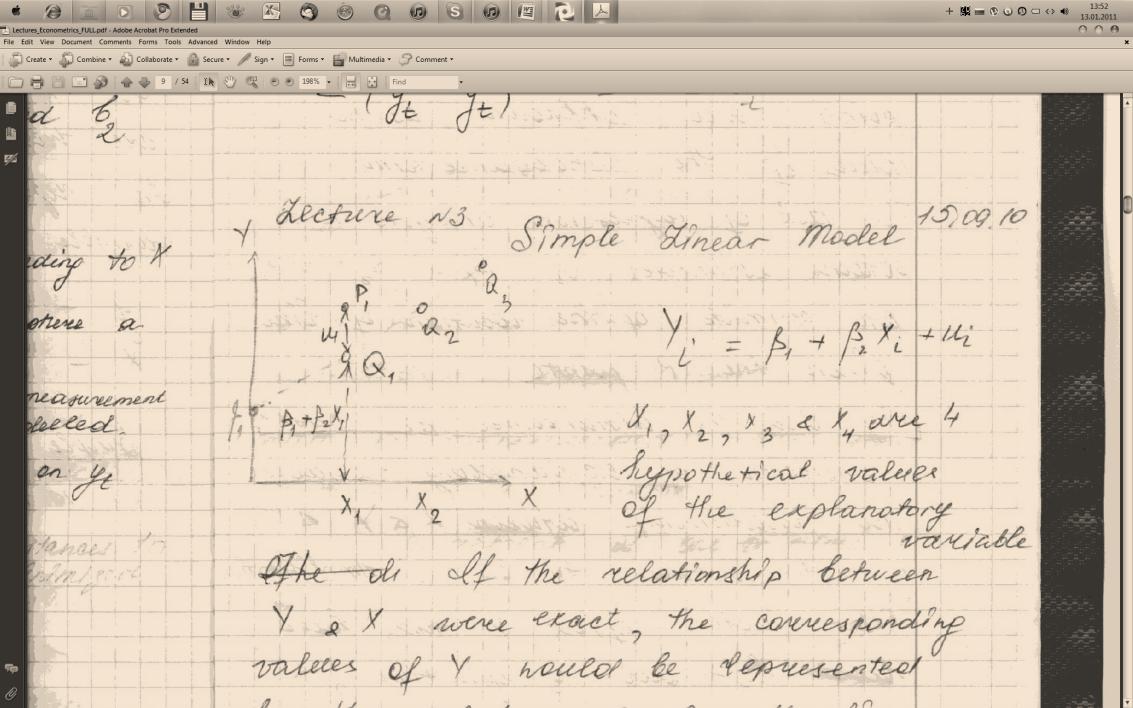 13:52
13.01.2011
Lectures_Econometrics_FULL.pdf - Adobe Acrobat Pro Extended
File Edit View Document Comments Forms Tools Advanced Window Help
Create Combine Collaborate Secure Sign Forms Multimedia Comment
9 / 54 198% Find
d b₂
(yt yt)
Lecture N3 15.09.10
Simple Linear Model
Y
ding to X
Q₃
P₁
where a
Q₂
u₁
Q₁
Yi = β₁ + β₂Xi + ui
measurement
β₁+β₂X₁
X₁, X₂, X₃ & X₄ are 4
on yt
hypothetical values
X₁ X₂ X
of the explanatory
variable
The di If the relationship between
Y & X were exact, the corresponding
values of Y would be represented